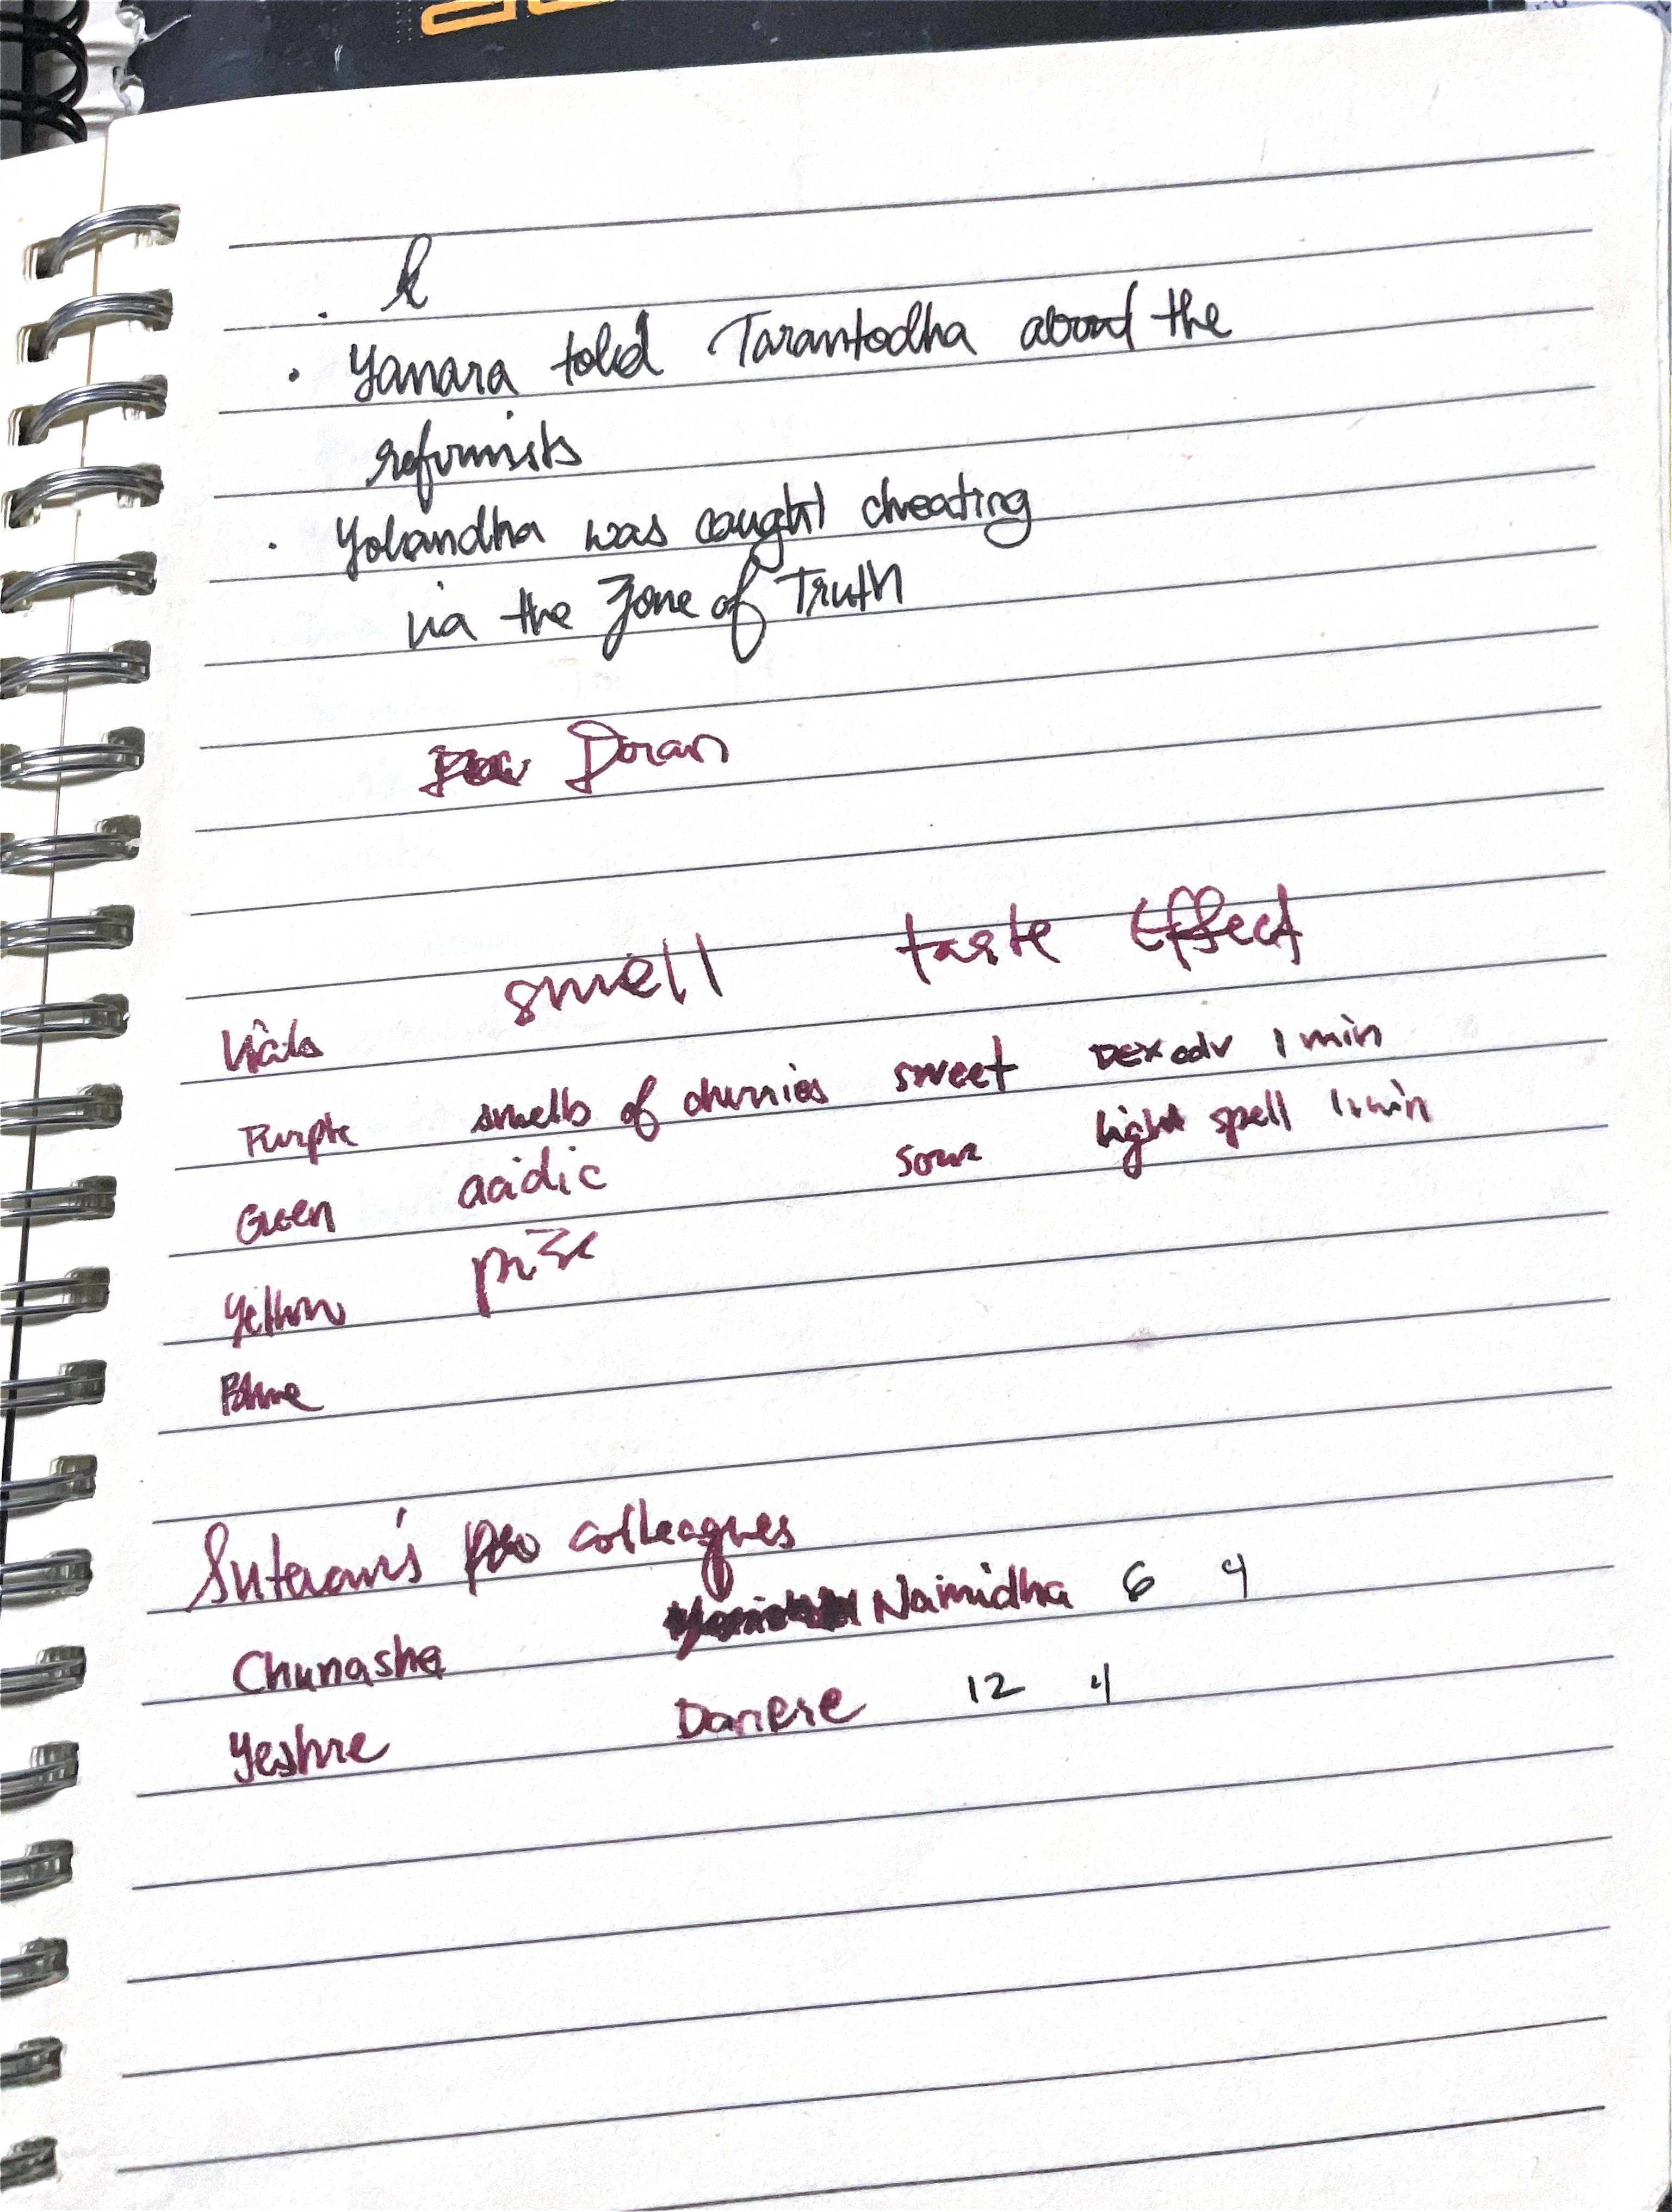 . k
. Yanara told Tarantodha about the
reformists
. Yolandha was caught cheating
via the Zone of Truth
Doran
smell taste Effect
Vials
Purple smells of chunnies sweet DEX adv 1 min
Green acidic sour light spell 1 min
Yellow
Blue
colleagues
Chunasha Naimidha 6 4
Yeshre Danere 12 4